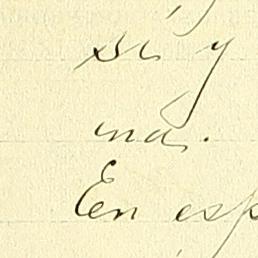 si y
ma.
En esp